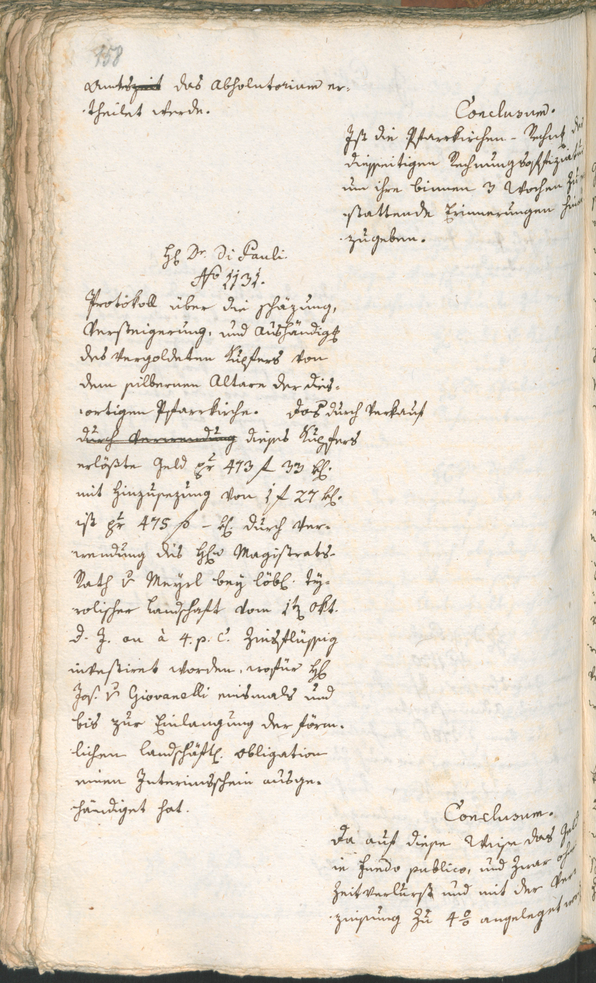 158
Amts das Absolutorium er-
theilet werde.
Conclusum.
Ist die Pfarrkirchen-Rechnung der
diesseitigen Rechnungsoffiziatur
um ihre binnen 3 Wochen zu er-
stattende Erinnerungen hin-
zugeben.
H. Dr. Di Pauli
No 1131.
Protokoll über die Schäzung,
Versteigerung, und Aushändig
des vergoldeten Kupfers von
dem silbernen Altare der dies-
ortigen Pfarrkirche. Das durch Verkauf
durch Verwendung dieses Kupfers
erlößte Geld pr 473 f 33 kr.
mit Hinzusezung von 1 f 27 kr.
ist pr 475 f – kr. durch Ver-
wendung des H. Magistrats-
Rath v Menz bey löbl. ty-
rolischer Landschaft vom Okt.
d. J. an à 4. p. C. Zinsflüssig
investiret worden, wofür H
Jos. v Giovanelli einsmals und
bis zur Einlangung der förm-
lichen Landschäftl. Obligation
einen Interimsschein ausge-
händiget hat.
Conclusum.
Da auf diese Weise das Geld
in fundo publico, und zwar ohne
Zeitverlurst und mit der Ver-
zinsung zu 4 % angeleget